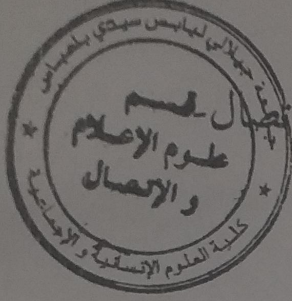 جامعة جيلالي ليابس سيدي بلعباس
قسم
علوم الإعلام
و الإتصال
كلية العلوم الإنسانية و الإجتماعية